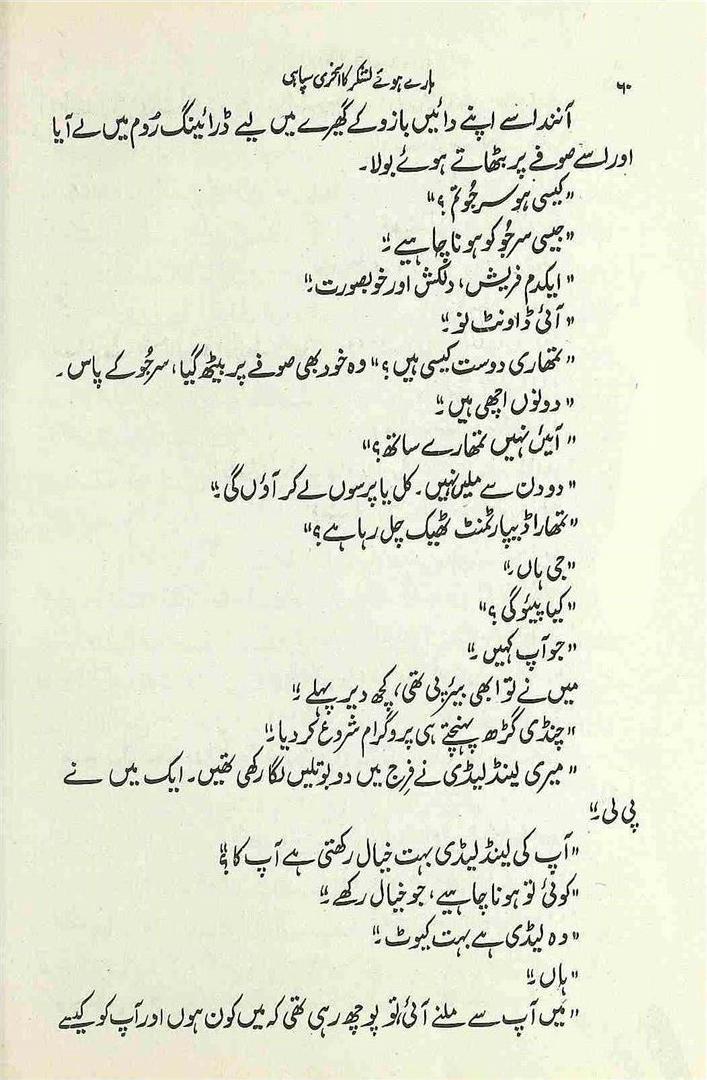 ۶۰
ہارے ہوئے لشکر کا آخری سپاہی
آنند اسے اپنے دائیں بازو کے گھیرے میں لیے ڈرائینگ رُوم میں لے آیا
اور اسے صوفے پر بٹھاتے ہوئے بولا۔
”کیسی ہو سرجُو تم؟“
”جیسی سرجُو کو ہونا چاہیے۔“
”ایکدم فریش، دلکش اور خوبصورت۔“
”آئی ڈاونٹ نو۔“
”تمھاری دوست کیسی ہیں؟“ وہ خود بھی صوفے پر بیٹھ گیا، سرجُو کے پاس۔
”دونوں اچھی ہیں۔“
”آئیں نہیں تمھارے ساتھ؟“
”دو دن سے ملیں نہیں۔ کل یا پرسوں لے کر آؤں گی۔“
”تمھارا ڈیپارٹمنٹ ٹھیک چل رہا ہے؟“
”جی ہاں۔“
”کیا پیئو گی؟“
”جو آپ کہیں۔“
میں نے تو ابھی بیئر پی تھی، کچھ دیر پہلے۔“
”چنڈی گڑھ پہنچتے ہی پروگرام شروع کر دیا۔“
”میری لینڈ لیڈی نے فرج میں دو بوتلیں لگا رکھی تھیں۔ ایک میں نے
پی لی۔“
”آپ کی لینڈ لیڈی بہت خیال رکھتی ہے آپ کا؟“
”کوئی تو ہونا چاہیے، جو خیال رکھے۔“
”وہ لیڈی ہے بہت کیوٹ۔“
”ہاں۔“
”میں آپ سے ملنے آئی، تو پوچھ رہی تھی کہ میں کون ہوں اور آپ کو کیسے